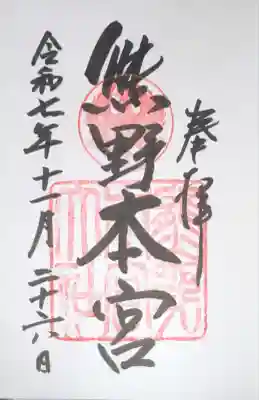 奉拝
熊野本宮
令和七年十一月二十六日